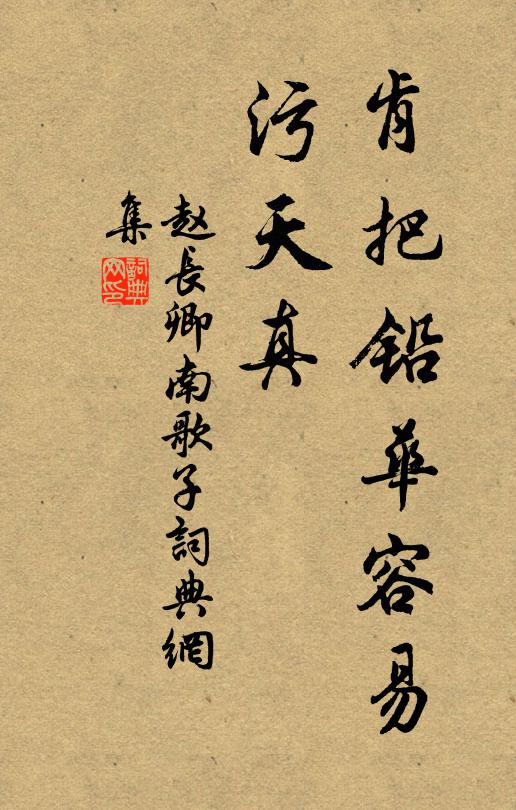 肯把铅華容易
污天真
赵長卿南歌子詞典網
集
詞典
网印